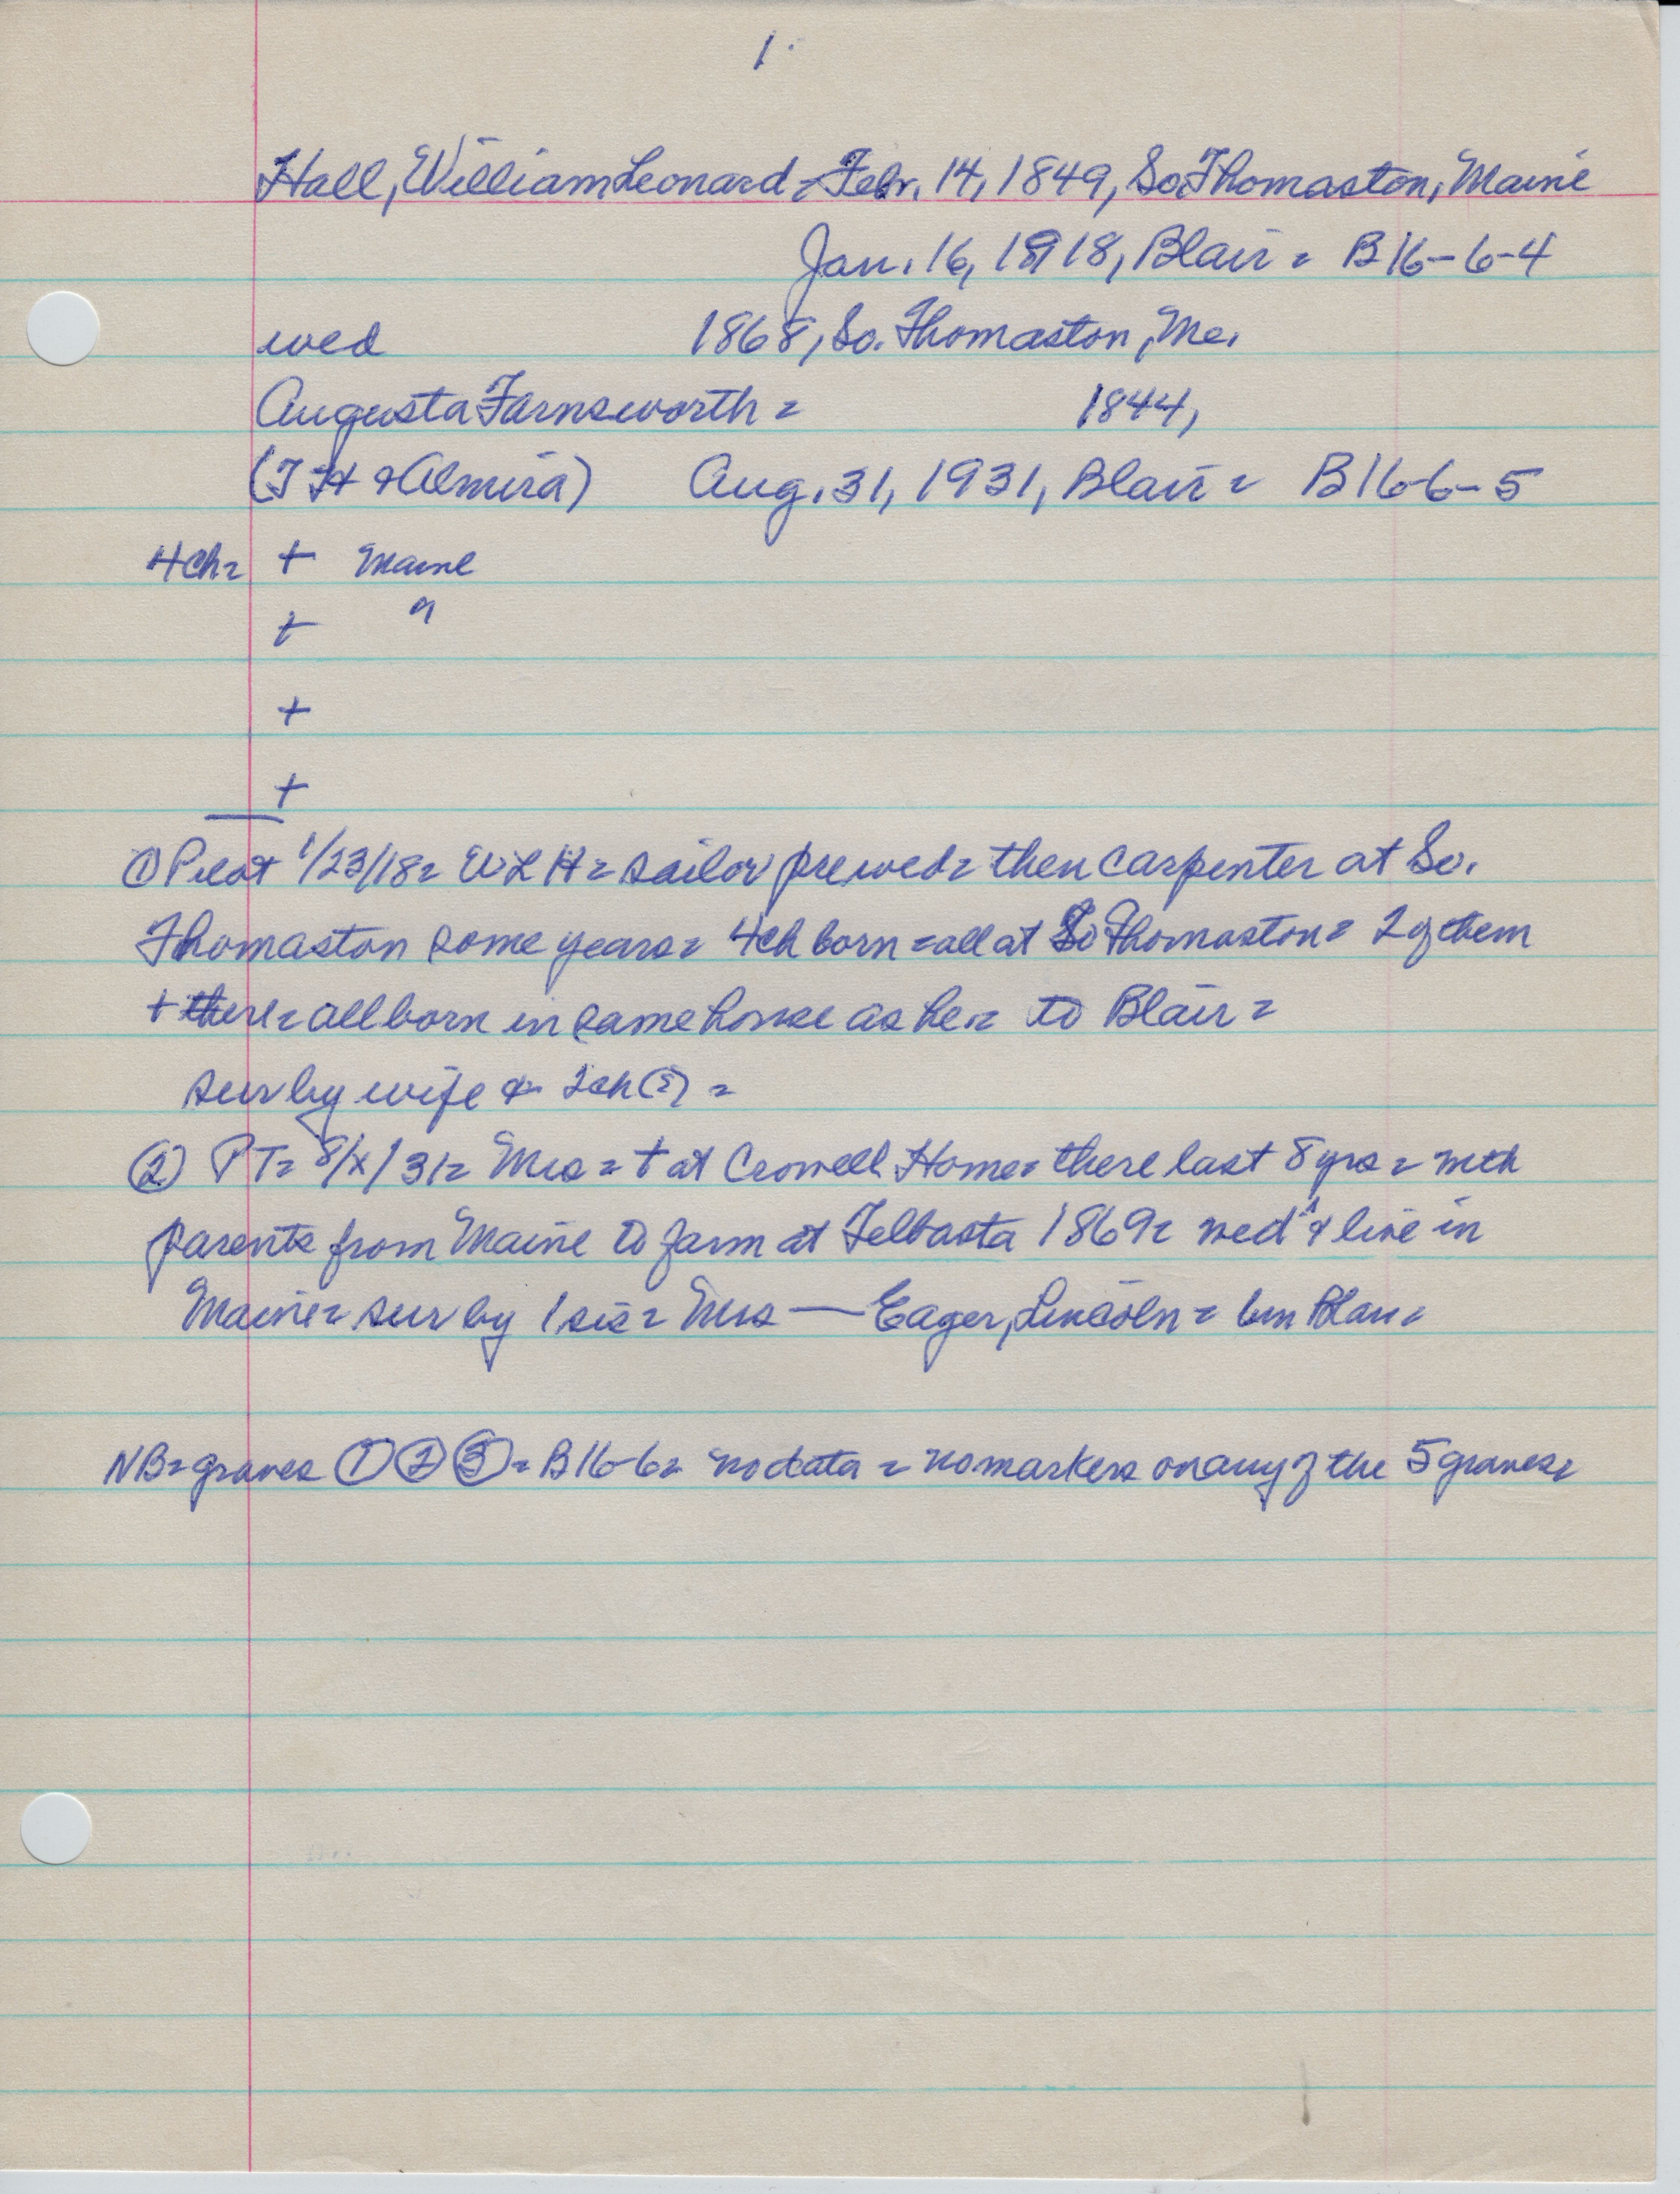 1.
Hall, William Leonard = Febr. 14, 1849, So. Thomaston, Maine
Jan. 16, 1918, Blair = B16-6-4
wed 1868, So. Thomaston, Me.
Augusta Farnsworth = 1844,
( & Almira) Aug. 31, 1931, Blair = B16-6-5
4ch = + Maine
+ "
+
+
① Pilot 1/23/18 = WLH = sailor prewed = then carpenter at So.
Thomaston some years = 4ch born = all at So Thomaston = 2 of them
+ there = all born in same house as he = to Blair =
sur by wife & 2ch(?) =
② PT = 8/x/31 = Mrs = + at Crowell Home = there last 8 yrs =
parents from Maine to farm at Telbasta 1869 = wed & live in
Maine = sur by 1 sis = Mrs — Eager, Lincoln = Blair =
NB = graves ① ② ③ = B16-6 = no data = no markers on any of the 5 graves =